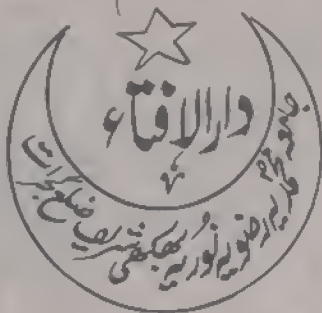 دارالافتاء
جامعہ محمدیہ رضویہ نوریہ بھکھی شریف ضلع گجرات